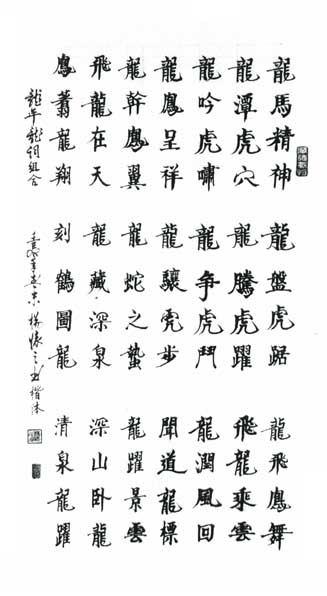 龍馬精神 龍盤虎踞 龍飛鳳舞
龍潭虎穴 龍騰虎躍 飛龍乘雲
龍吟虎嘯 龍争虎鬥 龍潤風回
龍鳳呈祥 龍驤虎步 聞道龍標
龍幹鳳翼 龍蛇之蟄 龍躍景雲
飛龍在天 龍藏深泉 深山卧龍
鳳翥龍翔 刻鶴圖龍 清泉龍躍
龍年龍詞組合 楷体